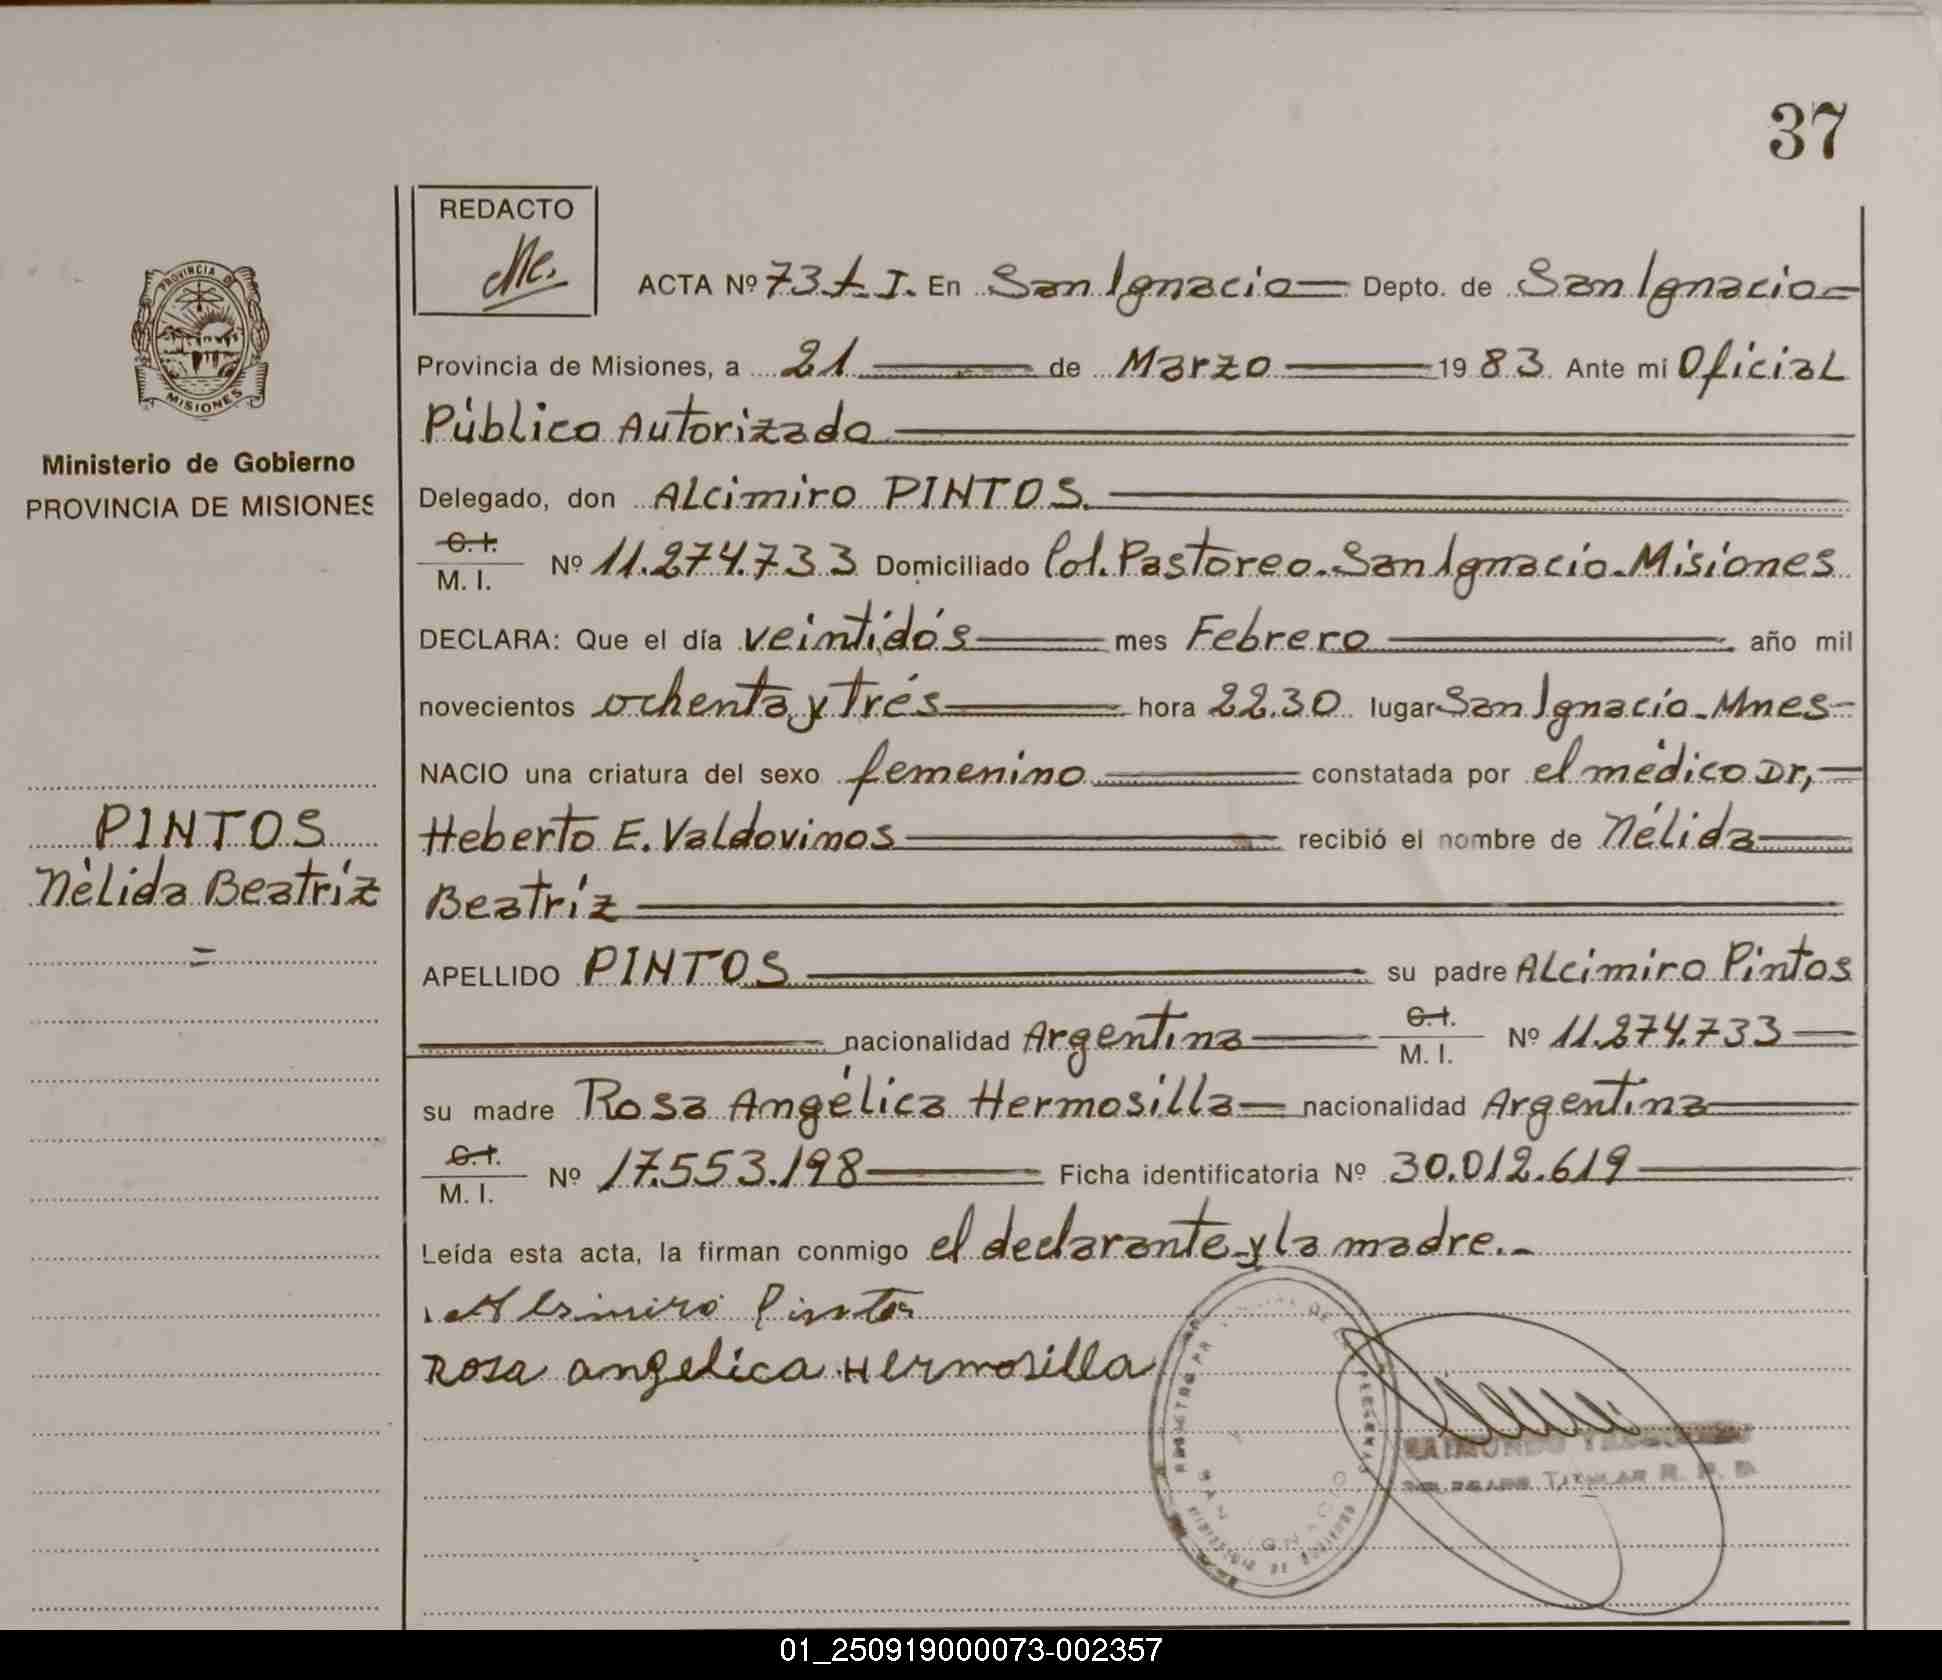 37
REDACTO
PROVINCIA DE
MISIONES
Ministerio de Gobierno
PROVINCIA DE MISIONES
PINTOS
Nélida Beatríz
=
ACTA Nº 73 t. I. En San Ignacio Depto. de San Ignacio
Provincia de Misiones, a 21 de Marzo 19 83 Ante mi Oficial
Público Autorizado
Delegado, don Alcimiro PINTOS.
C. I.
M. I. Nº 11.274.733 Domiciliado Col. Pastoreo-San Ignacio-Misiones
DECLARA: Que el día veintidós mes Febrero año mil
novecientos ochenta y trés hora 22.30 lugar San Ignacio-Mnes-
NACIO una criatura del sexo femenino constatada por el médico Dr,
Heberto E. Valdovinos recibió el nombre de Nélida
Beatríz
APELLIDO PINTOS su padre Alcimiro Pintos
nacionalidad Argentina C. I. M. I. Nº 11.274.733
su madre Rosa Angélica Hermosilla nacionalidad Argentina
C. I.
M. I. Nº 17.553.198 Ficha identificatoria Nº 30.012.619
Leída esta acta, la firman conmigo el declarante y la madre.-
Alsimiro Pintos
Rosa angelica Hermosilla
SAN IGNACIO
MINISTERIO DE GOBIERNO
RAIMUNDO
DELEGADO TITULAR R. P. P.
01_250919000073-002357